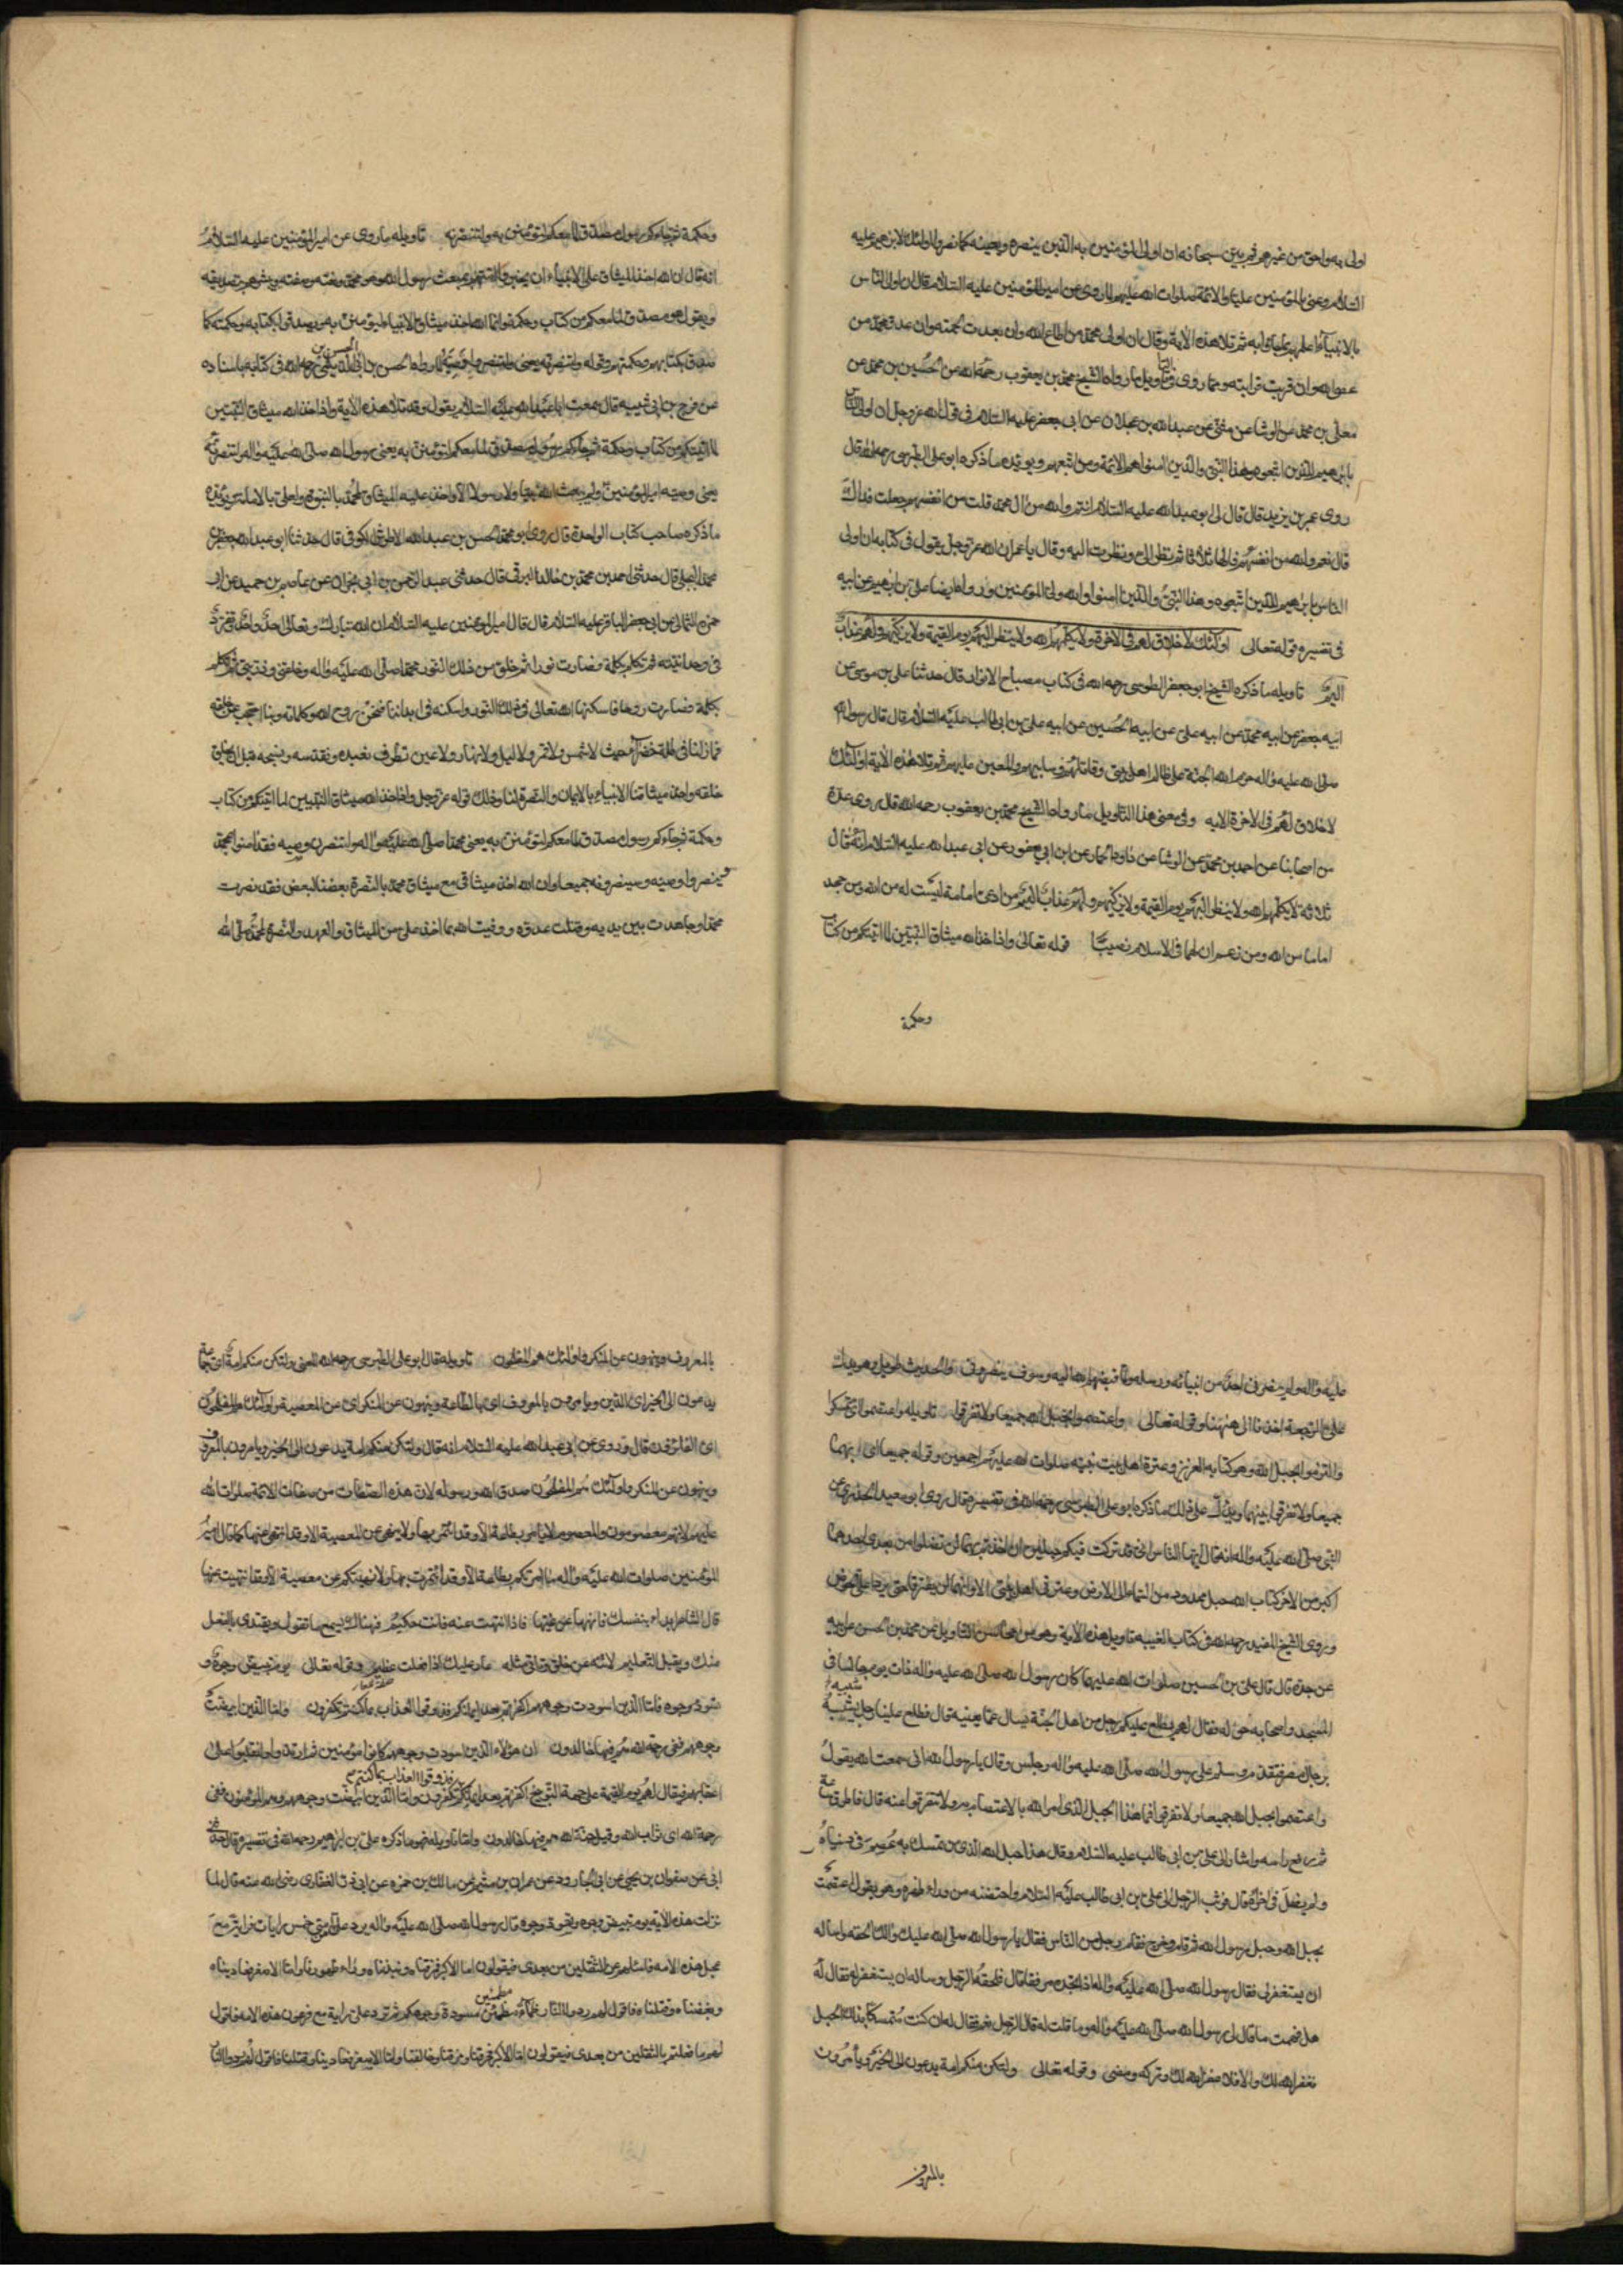 اولى به واحق من غيرهم ثم بين سبحانه ان اولى المؤمنين به الذين ينصره ويعينه كما نصروا اولئك لابرهيم عليه
السلام وعنى بالمؤمنين عليا والائمة صلوات الله عليهم لما روى عن امير المؤمنين عليه السلام قال ان اولى الناس
بالانبياء اعلمهم بما جاؤا به ثم تلا هذه الآية وقال ان اولى محمد من اطاع الله وان بعدت لحمته وان عدو محمد من
عصى الله وان قربت قرابته ومما روى في تأويل ما رواه الشيخ محمد بن يعقوب رحمه الله من الحسين بن محمد عن
معلى بن محمد عن الوشا عن مثنى عن عبدالله بن عجلان عن ابى جعفر عليه السلام فى قول الله عز وجل ان اولى الناس
بابرهيم للذين اتبعوه وهذا النبى والذين امنوا هم الائمة ومن اتبعهم ويؤيده ما ذكره ابو على الطبرسى رحمه الله قال
روى عمر بن يزيد قال قال لى ابو عبدالله عليه السلام انتم والله من ال محمد قلت من انفسهم جعلت فداك
قال نعم والله من انفسهم قالها ثلاثا ثم نظر الى ونظرت اليه وقال يا عمر ان الله عز وجل يقول فى كتابه ان اولى
الناس بابرهيم للذين اتبعوه وهذا النبى والذين امنوا والله ولى المؤمنين ورواه ايضا على بن ابرهيم عن ابيه
فى تفسيره قوله تعالى اولئك لا خلاق لهم فى الاخرة ولا يكلمهم الله ولا ينظر اليهم يوم القيمة ولا يزكيهم ولهم عذاب
اليم تاويله ما ذكره الشيخ ابو جعفر الطوسى رحمه الله فى كتاب مصباح الانوار قال حدثنا على بن موسى عن
ابيه جعفر عن ابيه محمد عن ابيه على عن ابيه الحسين عن ابيه على بن ابى طالب عليه السلام قال قال رسول الله
صلى الله عليه واله حرم الله الجنة على ظالم اهل بيتى وقاتلهم وسابيهم والمعين عليهم ثم تلا هذه الآية اولئك
لا خلاق لهم فى الاخرة الايه وفى معنى هذا التاويل ما رواه الشيخ محمد بن يعقوب رحمه الله قال روى عدة
من اصحابنا عن احمد بن محمد عن الوشا عن داود الحمار عن ابن ابي يعفور عن ابى عبدالله عليه السلام انه قال
ثلاثة لا يكلمهم الله ولا ينظر اليهم يوم القيمة ولا يزكيهم ولهم عذاب اليم من ادعى امامة ليست له من الله ومن جحد
اماما من الله ومن زعم ان لهما فى الاسلام نصيبا قوله تعالى واذ اخذ الله ميثاق النبيين لما اتيتكم من كتاب
وحكمة
وحكمة ثم جاءكم رسول مصدق لما معكم لتؤمنن به ولتنصرنه تاويله ما روى عن امير المؤمنين عليه السلام
انه قال ان الله اخذ الميثاق على الانبياء ان يخبروا اممهم بمبعث رسول الله وهو محمد ونعته وصفته ويبشرهم بتصديقه
ويقول هو مصدق لما معكم من كتاب وحكمة وانما الله اخذ ميثاق الانبياء ليؤمنن به ويصدقوا بكتابه وحكمته كما
صدق بكتابهم وحكمتهم وقوله ولتنصرنه يعنى ولتنصروا وصيه لما رواه الحسن بن ابى الحسن الديلمى رحمه الله فى كتابه باسناده
عن فرج بن ابى شيبه قال سمعت ابا عبدالله عليه السلام يقول وقد تلا هذه الآية واذ اخذ الله ميثاق النبيين
لما اتيتكم من كتاب وحكمة ثم جاءكم رسول مصدق لما معكم لتؤمنن به يعنى رسول الله صلى الله عليه واله ولتنصرنه
يعنى وصيه امير المؤمنين ولم يبعث الله نبيا ولا رسولا الا واخذ عليه الميثاق لمحمد بالنبوة ولعلى بالامامة ويؤيده
ما ذكره صاحب كتاب الواحدة قال روى ابو محمد الحسن بن عبدالله الاطروش الكوفى قال حدثنا ابو عبدالله جعفر بن
محمد البجلى قال حدثنى احمد بن محمد بن خالد البرقى قال حدثنى عبد الرحمن بن ابى نجران عن عاصم بن حميد عن ابى
حمزه الثمالى عن ابى جعفر الباقر عليه السلام قال قال امير المؤمنين عليه السلام ان الله تبارك وتعالى احد واحد تفرد
فى وحدانيته ثم تكلم بكلمة فصارت نورا ثم خلق من ذلك النور محمدا صلى الله عليه واله وخلقنى وذريتى ثم تكلم
بكلمة فصارت روحا فاسكنها الله تعالى فى ذلك النور واسكنه فى ابداننا فنحن روح الله وكلماته وبنا احتجب عن خلقه
فما زلنا فى ظلة خضراء حيث لا شمس ولا قمر ولا ليل ولا نهار ولا عين تطرف نعبده ونقدسه ونسبحه قبل ان يخلق
خلقه واخذ ميثاق الانبياء بالايمان والنصرة لنا وذلك قوله عز وجل واذ اخذ الله ميثاق النبيين لما اتيتكم من كتاب
وحكمة ثم جاءكم رسول مصدق لما معكم لتؤمنن به يعنى محمدا صلى الله عليه واله ولتنصرن وصيه فقد امنوا بمحمد
ولم ينصروا وصيه وسينصرونه جميعا وان الله اخذ ميثاقى مع ميثاق محمد بالنصرة بعضنا لبعض فقد نصرت
محمدا وجاهدت بين يديه وقتلت عدوه ووفيت لله بما اخذ على من الميثاق والعهد والنصرة لمحمد صلى الله
عليه واله ولم ينصرنى احد من انبيائه ورسله لما قبضهم الله اليه وسوف ينصروننى والحديث طويل وهو يدل
على الرجعة اخذنا الى ههنا وقوله تعالى واعتصموا بحبل الله جميعا ولا تفرقوا تاويله واعتصموا اى تمسكوا
والتزموا بحبل الله وهو كتابه العزيز وعترة اهل بيت نبيه صلوات الله عليهم اجمعين وقوله جميعا اى بهما
جميعا ولا تفرقوا بينهما ويدل على ذلك ما ذكره ابو على الطبرسى رحمه الله فى تفسيره قال روى ابو سعيد الخدرى عن
النبى صلى الله عليه واله انه قال ايها الناس انى قد تركت فيكم حبلين ان اخذتم بهما لن تضلوا من بعدى احدهما
اكبر من الاخر كتاب الله حبل ممدود من السماء الى الارض وعترتى اهل بيتى الا وانهما لن يفترقا حتى يردا على الحوض
وروى الشيخ المفيد رحمه الله فى كتاب الغيبه تاويل هذه الآية وهو من محاسن التاويل عن محمد بن الحسن عن ابيه
عن جده قال قال على بن الحسين صلوات الله عليهما كان رسول الله صلى الله عليه واله ذات يوم جالسا فى
المسجد واصحابه حوله فقال لهم يطلع عليكم رجل من اهل الجنة يسال عما يعنيه قال فطلع علينا رجل شبيه
برجال مصر فتقدم وسلم على رسول الله صلى الله عليه واله وجلس وقال يا رسول الله انى سمعت الله يقول
واعتصموا بحبل الله جميعا ولا تفرقوا فما هذا الحبل الذى امر الله بالاعتصام به ولا تتفرقوا عنه قال فاطرق ساعة
ثم رفع راسه واشار الى على بن ابى طالب عليه السلام وقال هذا حبل الله الذى من تمسك به عصم فى دنياه
ولم يضل فى اخراه قال فوثب الرجل الى على بن ابى طالب عليه السلام واحتضنه من وراء ظهره وهو يقول اعتصمت
بحبل الله وحبل رسول الله ثم قام وخرج فقام رجل من الناس فقال يا رسول الله صلى الله عليك والك الحقه واساله
ان يستغفر لى فقال رسول الله صلى الله عليه واله اذا تجده مرفقا قال فلحقه الرجل وساله ان يستغفر له فقال له
هل فهمت ما قال لى رسول الله صلى الله عليه واله وما قلت له قال الرجل نعم فقال له ان كنت متمسكا بذلك الحبل
فغفر الله لك والا فلا غفر الله لك وتركه ومضى وقوله تعالى ولتكن منكم امة يدعون الى الخير ويأمرون
بالمعروف
بالمعروف وينهون عن المنكر واولئك هم المفلحون تاويله قال ابو على الطبرسى رحمه الله المعنى ولتكن منكم امة اى جماعة
يدعون الى الخير اى الدين ويامرون بالمعروف اى بالطاعة وينهون عن المنكر اى عن المعصية واولئك هم المفلحون
اى الفائزون قال وروى عن ابى عبدالله عليه السلام انه قال ولتكن منكم امة يدعون الى الخير ويامرون بالمعروف
وينهون عن المنكر واولئك هم المفلحون صدق الله ورسوله لان هذه الصفات من صفات الائمة صلوات الله
عليهم لانهم معصومون والمعصوم لا يامر بطاعة الا وقد ائتمر بها ولا ينهى عن المعصية الا وقد انتهى عنها كما قال امير
المؤمنين صلوات الله عليه واله ما امرتكم بطاعة الا وقد ائتمرت بها ولا نهيتكم عن معصية الا وقد انتهيت عنها
قال الشاعر ابداء بنفسك فانهها عن غيها فاذا انتهت عنه فانت حكيم فهناك يسمع ما تقول ويقتدى بالفعل
منك ويقبل التعليم لا تنه عن خلق وتاتى مثله عار عليك اذا فعلت عظيم وقوله تعالى يوم تبيض وجوه و
تسود وجوه فاما الذين اسودت وجوههم اكفرتم بعد ايمانكم فذوقوا العذاب بما كنتم تكفرون واما الذين ابيضت
وجوههم ففى رحمة الله هم فيها خالدون ان هؤلاء الذين اسودت وجوههم كانوا مؤمنين ثم ارتدوا وانقلبوا على
اعقابهم فيقال لهم يوم القيمة على جهة التوبيخ اكفرتم بعد ايمانكم فذوقوا العذاب بما كنتم تكفرون واما الذين ابيضت وجوههم وهم المؤمنون ففى
رحمة الله اى ثواب الله وقيل جنة الله هم فيها خالدون واما تاويله فهو ما ذكره على بن ابرهيم رحمه الله فى تفسيره قال حدثنى
ابى عن صفوان بن يحيى عن ابى الجارود عن عمران بن ميثم عن مالك بن حمزه عن ابى ذر الغفارى رضى الله عنه قال لما
نزلت هذه الآية يوم تبيض وجوه وتسود وجوه قال رسول الله صلى الله عليه واله يرد على امتى خمس رايات فراية مع
عجل هذه الامه فاسئلهم عن الثقلين من بعدى فيقولون اما الاكبر فمزقناه ونبذناه وراء ظهورنا واما الاصغر فعاديناه
وبغضناه وقتلناه فاقول لهم ردوا النار ظماء مظمئين مسودة وجوهكم ثم ترد على راية مع فرعون هذه الامه فاقول
لهم ما فعلتم بالثقلين من بعدى فيقولون اما الاكبر فحرفناه ومزقناه وخالفناه واما الاصغر فعاديناه وقتلناه فاقول لهم ردوا النار